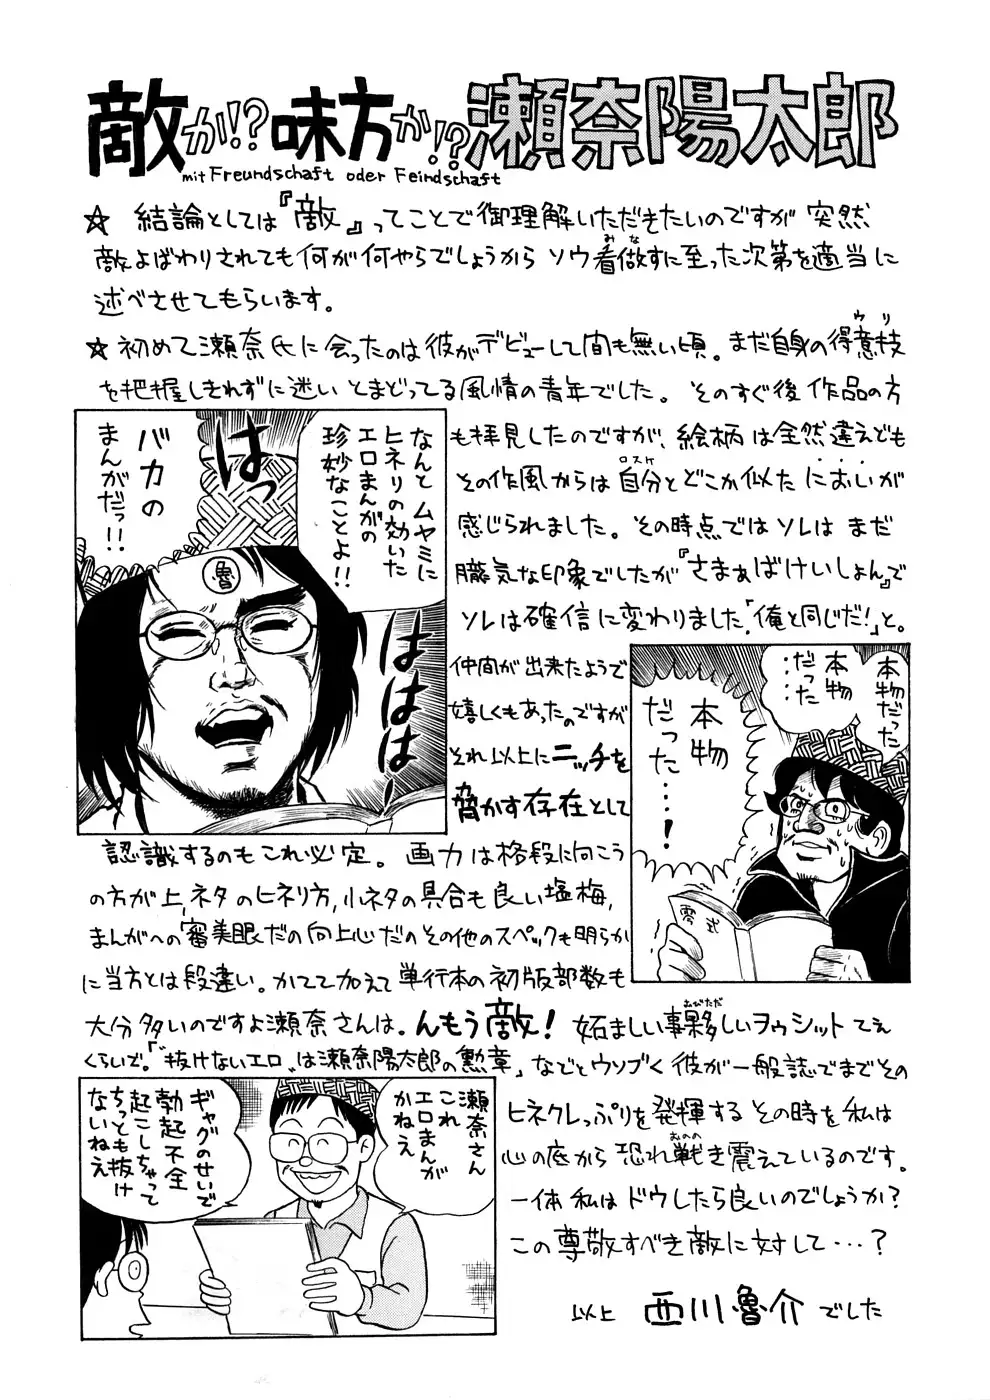 敵か!?味方か!?瀬奈陽太郎
mit Freundschaft oder Feindschaft
☆ 結論としては『敵』ってことで御理解いただきたいのですが 突然
敵よばわりされても何が何やらでしょうから ソウ看做すに至った次第を適当に
みな
述べさせてもらいます。
☆初めて瀬奈氏に会ったのは彼がデビューして間も無い頃。まだ自身の得意技
ウリ
を把握しきれずに迷い とまどってる風情の青年でした。そのすぐ後 作品の方
も拝見したのですが、絵柄は全然違えども
その作風からは自分とどこか似たにおいが
ロスケ
感じられました。その時点ではソレはまだ
朧気な印象でしたが『さまぁばけいしょん』で
ソレは確信に変わりました「俺と同じだ!」と。
なんとムヤミに
ヒネリの効いた
エロまんがの
珍妙なことよ!!
はっ
バカの
まんがだっ!!
魯
ははは
仲間が出来たようで
嬉しくもあったのですが
それ以上にニッチを
脅かす存在として
本物だった
本物
だった
……
本物
だった…‥!
零式
認識するのもこれ必定。画力は格段に向こう
の方が上、ネタのヒネリ方,小ネタの具合も良い塩梅,
まんがへの審美眼だの向上心だのその他のスペックも明らか
に当方とは段違い。かてて加えて単行本の初版部数も
大分多いのですよ瀬奈さんは。んもう敵! 妬ましい事夥しいヲゥシットてえ
おびただ
くらいで。"抜けないエロ"は瀬奈陽太郎の勲章」などとウソブく彼が一般誌でまでその
ヒネクレっぷりを発揮するその時を私は
心の底から恐れ戦き震えているのです。
おのの
一体私はドウしたら良いのでしょうか?
この尊敬すべき敵に対して…?
瀬奈さん
これ
エロまんが
かねえ
ギャグのせいで
勃起不全
起こしちゃって
ちっとも抜け
ないねえ
以上 西川魯介でした